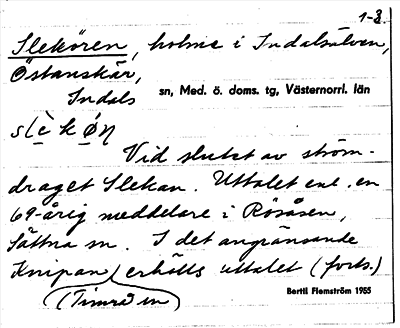 1-3.
Slekören, holme i Indalsälven,
Östanskär,
Indals sn, Med. ö. doms. tg, Västernorrl. län
slè̱kø̱̀ŋ
Vid slutet av ström-
draget Slekan. Uttalet enl. en
69-årig meddelare i Rösåsen,
Sättna sn. I det angränsande
Knipan (Timrå sn) erhölls uttalet (forts.)
Bertil Flemström 1955